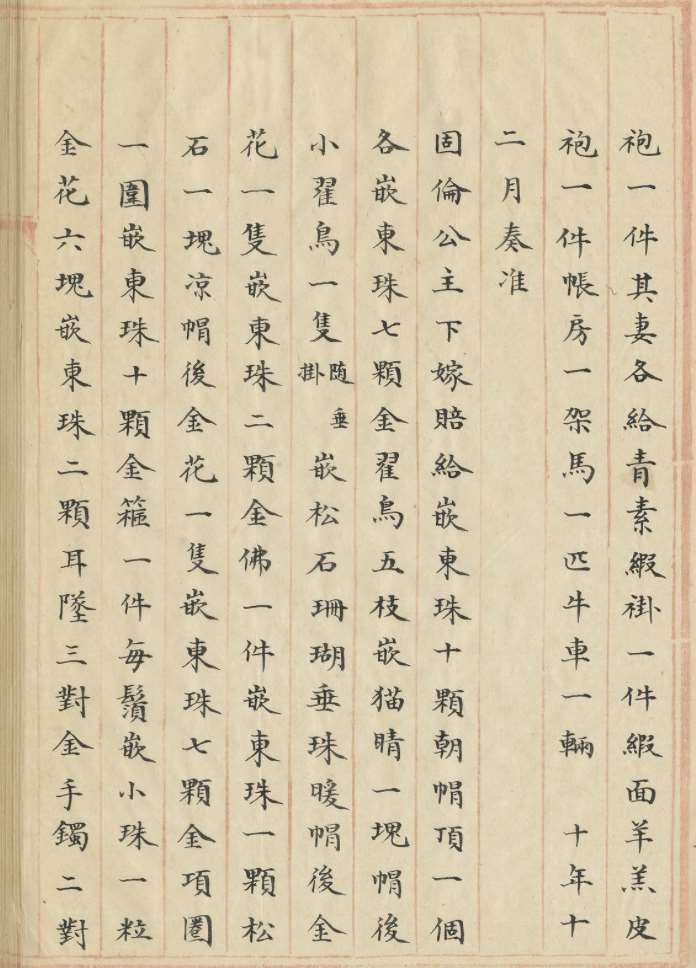 袍一件其妻各給青素緞褂一件緞面羊羔皮
袍一件帳房一架馬一匹牛車一輛　十年十
二月奏准
固倫公主下嫁賠給嵌東珠十顆朝帽頂一個
各嵌東珠七顆金翟鳥五枝嵌猫睛一塊帽後
小翟鳥一隻随垂掛嵌松石珊瑚垂珠暖帽後金
花一隻嵌東珠二顆金佛一件嵌東珠一顆松
石一塊凉帽後金花一隻嵌東珠七顆金項圏
一圍嵌東珠十顆金箍一件每鬚嵌小珠一粒
金花六塊嵌東珠二顆耳墜三對金手鐲二對